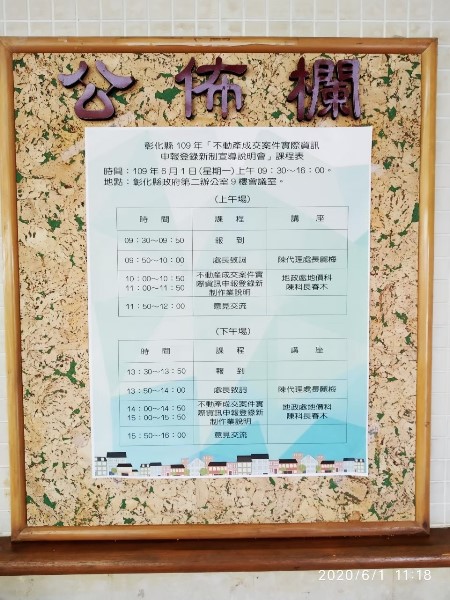 公佈欄
彰化縣 109 年「不動產成交案件實際資訊
申報登錄新制宣導說明會」課程表
時間：109 年 6 月 1 日(星期一)上午 09：30～16：00。
地點：彰化縣政府第二辦公室 9 樓會議室。
(上午場)
時 間 課 程 講 座
09：30～09：50 報 到
09：50～10：00 處長致詞 陳代理處長麗梅
10：00～10：50 不動產成交案件實 地政處地價科
11：00～11：50 際資訊申報登錄新 陳科長春木
制作業說明
11：50～12：00 意見交流
(下午場)
時 間 課 程 講 座
13：30～13：50 報 到
13：50～14：00 處長致詞 陳代理處長麗梅
14：00～14：50 不動產成交案件實 地政處地價科
15：00～15：50 際資訊申報登錄新 陳科長春木
制作業說明
15：50～16：00 意見交流
2020/6/1 11:18